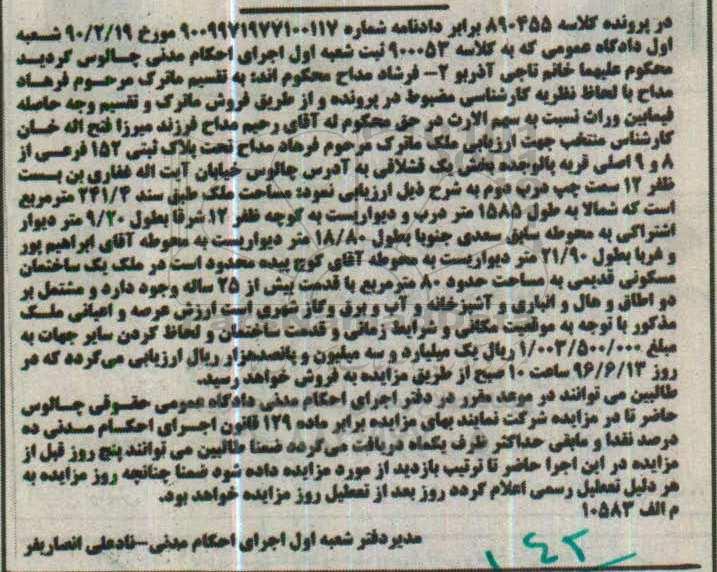 در پرونده کلاسه ۸۹۰۴۵۵ برابر دادنامه شماره ۹۰۰۹۹۷۱۹۷۷۱۰۰۱۱۷ مورخ ۹۰/۲/۱۹ شعبه
اول دادگاه عمومی که به کلاسه ۹۰۰۰۵۳ ثبت شعبه اول اجرای احکام مدنی چالوس گردید
محکوم علیهما خانم تاجی آذربو ۲- فرشاد مداح محکوم اند: به تقسیم ماترک مرحوم فرهاد
مداح با لحاظ نظریه کارشناسی مضبوط در پرونده و از طریق فروش ماترک و تقسیم وجه حاصله
فیمابین وراث نسبت به سهم الارث در حق محکوم له آقای رحیم مداح فرزند میرزا فتح اله خان
کارشناس منتخب جهت ارزیابی ملک ماترک مرحوم فرهاد مداح تحت پلاک ثبتی ۱۵۲ فرعی از
۸ و ۹ اصلی قریه پالوجده بخش یک قشلاقی به آدرس چالوس خیابان آیت اله غفاری بن بست
ظفر ۱۲ سمت چپ درب دوم به شرح ذیل ارزیابی نمود: مساحت ملک طبق سند ۲۴۱/۴ مترمربع
است که شمالا به طول ۱۵۸۵ متر درب و دیواریست به کوچه ظفر ۱۲ شرقا بطول ۹/۲۰ متر دیوار
اشتراکی به محوطه سابق سعدی جنوبا بطول ۱۸/۸۰ متر دیواریست به محوطه آقای ابراهیم پور
و غربا بطول ۲۱/۹۰ متر دیواریست به محوطه آقای کوچ بیده محدود است در ملک یک ساختمان
مسکونی قدیمی به مساحت حدود ۸۰ مترمربع با قدمت بیش از ۲۵ ساله وجود دارد و مشتمل بر
دو اطاق و هال و انباری و آشپزخانه و آب و برق وگاز شهری است ارزش عرصه و اعیانی ملک
مذکور با توجه به موقعیت مکانی و شرایط زمانی و قدمت ساختمان و لحاظ کردن سایر جهات به
مبلغ ۱/۰۰۳/۵۰۰/۰۰۰ ریال یک میلیارد و سه میلیون و پانصدهزار ریال ارزیابی می‌گردد که در
روز ۹۶/۶/۱۳ ساعت ۱۰ صبح از طریق مزایده به فروش خواهد رسید.
طالبین می توانند در موعد مقرر در دفتر اجرای احکام مدنی دادگاه عمومی حقوقی چالوس
حاضر تا در مزایده شرکت نمایند بهای مزایده برابر ماده ۱۲۹ قانون اجرای احکام مدنی ده
درصد نقدا و مابقی حداکثر ظرف یکماه دریافت می‌گردد ضمنا طالبین می توانند پنج روز قبل از
مزایده در این اجرا حاضر تا ترتیب بازدید از مورد مزایده داده شود ضمنا چنانچه روز مزایده به
هر دلیل تعطیل رسمی اعلام گردد روز بعد از تعطیل روز مزایده خواهد بود.
م الف ۱۰۵۸۳
مدیردفتر شعبه اول اجرای احکام مدنی-نادعلی انصاریفر